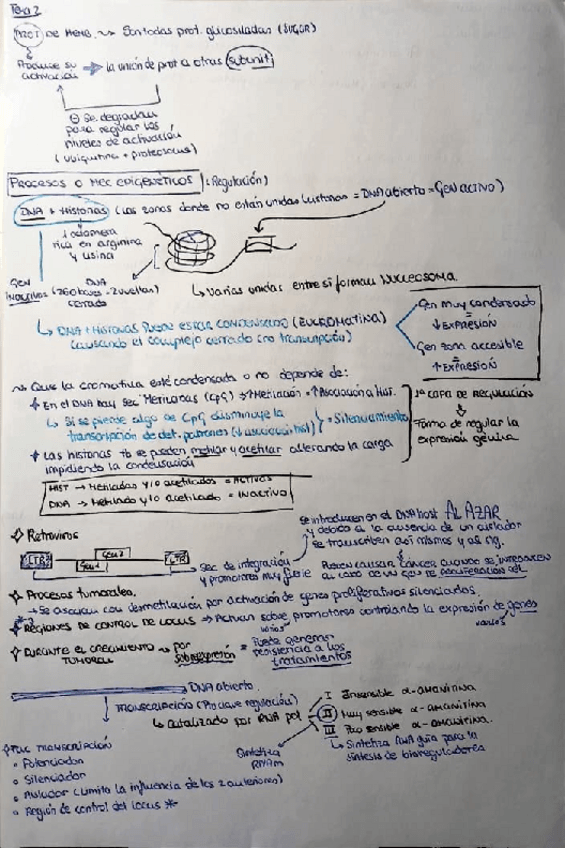 Tema 2
PROT DE MEMB. ~> Son todas prot. glucosiladas (SUGAR)
Produce su activación => la unión de prot a otras subunit
⊖ Se degradan
para regular los
niveles de activación
(ubiquitina + proteosomas)
PROCESOS O MEC EPIGENÉTICOS (Regulación)
DNA + Histonas (Las zonas donde no están unidas histonas = DNA abierto = GEN ACTIVO)
octamero
rica en arginina
y lisina
GEN
INACTIVOS
DNA
cerrado
↳ Varias unidas entre si forman NUCLEOSOMA.
↳ DNA + HISTONAS PUEDE ESTAR CONDENSADO (EUCROMATINA)
causando el complejo cerrado (no transcripción)
Gen muy condensado
=
↓ EXPRESIÓN
Gen zona accesible
=
↑ EXPRESIÓN
~> Que la cromatina esté condensada o no depende de:
En el DNA hay sec Metiladas (CpG) ↑Metilación = ↑Asociación a Hist.
↳ Si se pierde algo de CpG disminuye la
transcripción de det. patrones = Silenciamiento
Las histonas tb se pueden metilar y acetilar alterando la carga
impidiendo la condensación
1ª CAPA DE REGULACIÓN
Forma de regular la
expresión génica
HIST → Metiladas y/o acetiladas = ACTIVOS
DNA → Metilado y/o acetilado = INACTIVO
Retrovirus
se introducen en el DNA host AL AZAR
y debido a la ausencia de un aislador
se transcriben así mismos y as ng.
LTR Gen 1 Gen 2 LTR
Sec de integración
y promotores muy fuerte
Pueden causar cáncer cuando se introducen
al lado de un gen de proliferación cel.
Procesos tumorales.
→ Se asocian con desmetilación por activación de genes proliferativos silenciados.
REGIONES DE CONTROL DE LOCUS → Actuan sobre promotores controlando la expresión de genes
varios
varios
DURANTE EL CRECIMIENTO
TUMORAL
~> por
sobreexpresión = Puede generar
resistencia a los
tratamientos
DNA abierto.
TRANSCRIPCIÓN (Proc clave regulación)
↳ Catalizado por RNA pol
I Insensible α-amanitina
II Muy sensible α-amanitina
III Poco sensible α-amanitina.
↳ Sintetiza RNA guía para la
síntesis de biorreguladores
Sintetiza
RNAm
TRANSCRIPCIÓN
Potenciador
Silenciador
Aislador (Limita la influencia de los 2 anteriores)
Región de control del locus *